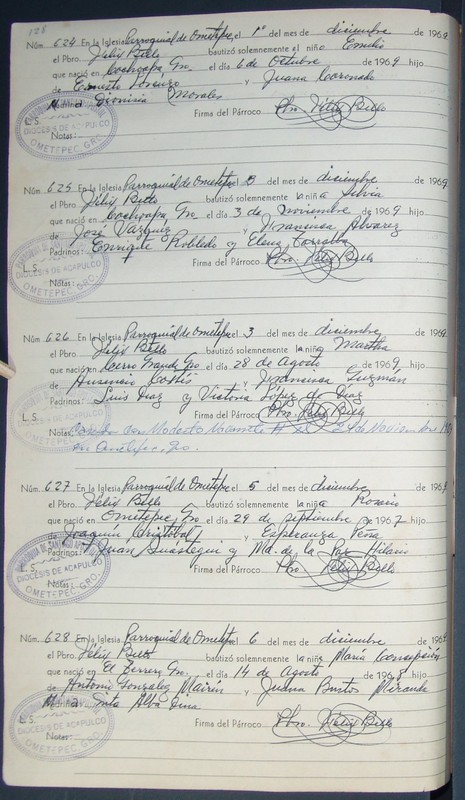 128
Núm. 624 En la Iglesia Parroquial de Ometepec, el 1º del mes de diciembre de 1969
el Pbro. Félix Bello bautizó solemnemente el niño Emilio
que nació en Cochoapa, Gro. el día 6 de Octubre de 1969 hijo
de Ernesto Lorenzo y Juana Coronado
Madrina: Dionisia Morales Firma del Párroco Pbro. Félix Bello
L. S.
DIOCESIS DE ACAPULCO
OMETEPEC, GRO.
Notas:
Núm. 625 En la Iglesia Parroquial de Ometepec el 3 del mes de diciembre de 1969
el Pbro. Félix Bello bautizó solemnemente la niña Silvia
que nació en Cochoapa, Gro. el día 3 de noviembre de 1969 hijo
de José Vázquez y Francisca Alvarez
Padrinos: Enrique Robledo y Elena
L. S. Firma del Párroco Pbro. Félix Bello
DIOCESIS DE ACAPULCO
OMETEPEC, GRO.
Notas:
Núm. 626 En la Iglesia Parroquial de Ometepec el 3 del mes de diciembre de 1969
el Pbro. Félix Bello bautizó solemnemente la niña Martha
que nació en Cerro Grande Gro el día 28 de Agosto de 1969 hijo
de Ausencio y Francisca Guzmán
Padrinos: Luis Díaz y Victoria López de Díaz
L. S. Firma del Párroco Pbro. Félix Bello
Notas: con Modesto el 24 de Noviembre
en Ometepec, Gro.
Núm. 627 En la Iglesia Parroquial de Ometepec el 5 del mes de diciembre de 196
el Pbro. Félix Bello bautizó solemnemente la niña Rosario
que nació en Ometepec, Gro el día 29 de septiembre de 1967 hijo
de Joaquín Cristóbal y Esperanza Peña
Padrinos: Juan Suastegui y Ma. de la Paz Hilario
DIOCESIS DE ACAPULCO
L. S. Pbro. Félix Bello
OMETEPEC, GRO.
Notas:
Núm. 628 En la Iglesia Parroquial de Ometepec el 6 del mes de diciembre de 196
el Pbro. Félix Bello bautizó solemnemente la niña María Concepción
que nació en El Gro. el día 14 de Agosto de 1968 hijo
de Antonio González Mairén y Juana Bustos Miranda
Madrina: Alba
L. S. Firma del Párroco Pbro. Félix Bello
DIOCESIS DE ACAPULCO
OMETEPEC, GRO.
Notas: